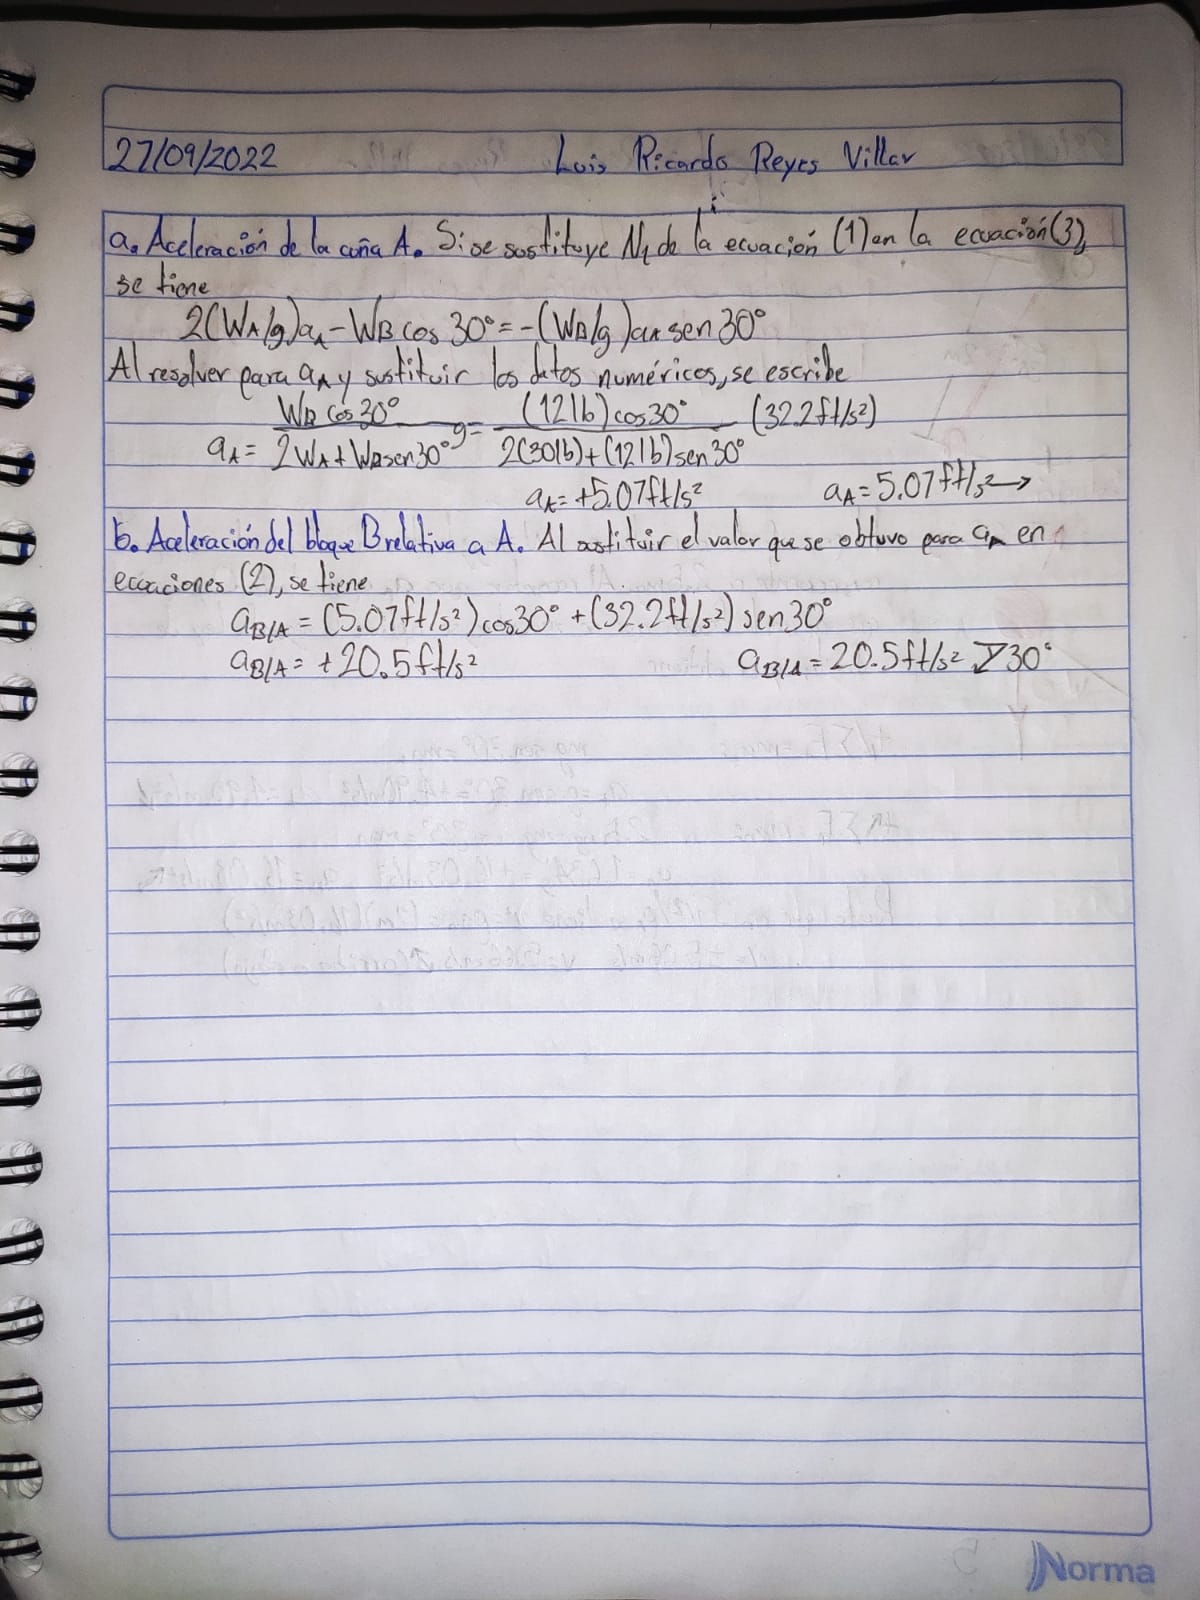 27/09/2022 Luis Ricardo Reyes Villar
a. Aceleración de la cuña A. Si se sustituye N₁ de la ecuación (1) en la ecuación (3),
se tiene
2(WA/g)aA - WB cos 30° = -(WB/g)aA sen 30°
Al resolver para aA y sustituir los datos numéricos, se escribe
aA = WB cos 30° / 2WA + WB sen 30° g = (12 lb) cos 30° / 2(30 lb) + (12 lb) sen 30° (32.2 ft/s²)
aA = +5.07 ft/s² aA = 5.07 ft/s² →
b. Aceleración del bloque B relativa a A. Al sustituir el valor que se obtuvo para aA en
ecuaciones (2), se tiene
aB/A = (5.07 ft/s²) cos 30° + (32.2 ft/s²) sen 30°
aB/A = +20.5 ft/s² aB/A = 20.5 ft/s² 30°
Norma